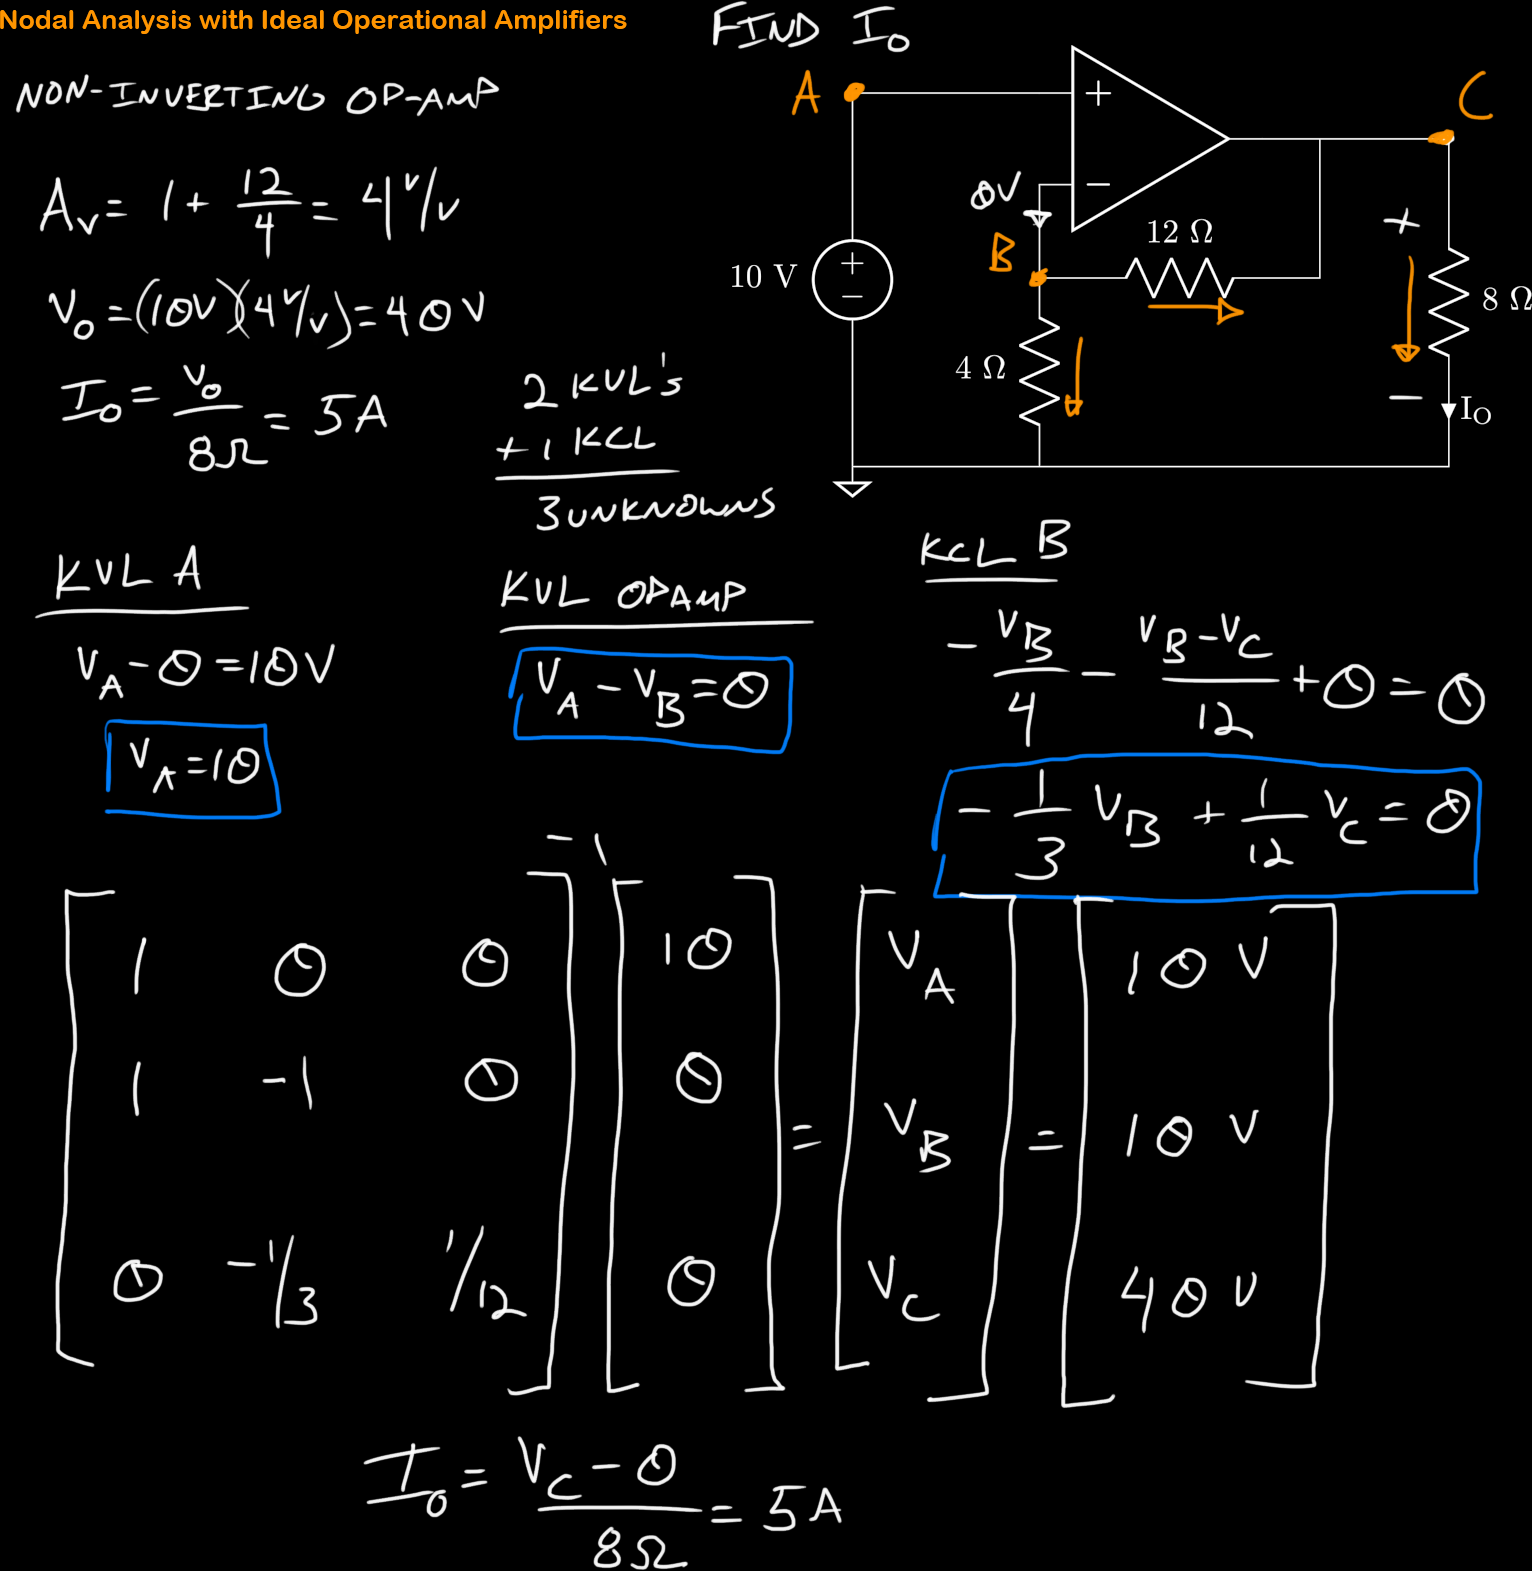 Nodal Analysis with Ideal Operational Amplifiers
FIND I₀
NON-INVERTING OP-AMP
Aᵥ = 1 + 12/4 = 4 V/V
V₀ = (10V)(4 V/V) = 40 V
I₀ = V₀/8Ω = 5A
2 KVL's
+ 1 KCL
3 UNKNOWNS
A
+
−
C
0V
B
12 Ω
10 V
+
−
4 Ω
+
8 Ω
−
I_O
KVL A
V_A − 0 = 10V
V_A = 10
KVL OPAMP
V_A − V_B = 0
KCL B
− V_B/4 − (V_B − V_C)/12 + 0 = 0
− 1/3 V_B + 1/12 V_C = 0
[1 0 0; 1 −1 0; 0 −1/3 1/12]⁻¹ [10; 0; 0] = [V_A; V_B; V_C] = [10 V; 10 V; 40 V]
I₀ = (V_C − 0)/8Ω = 5A